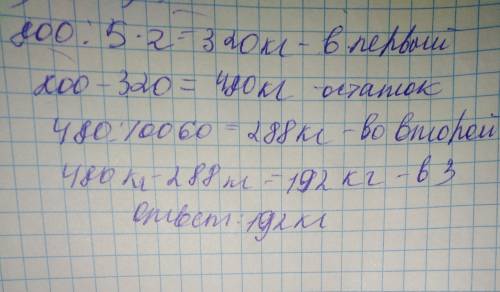 800:5·2=320кг-в первый
800-320=480кг остаток
480:10060=288кг-во второй
480кг-288кг=192кг-в 3
ответ:192кг